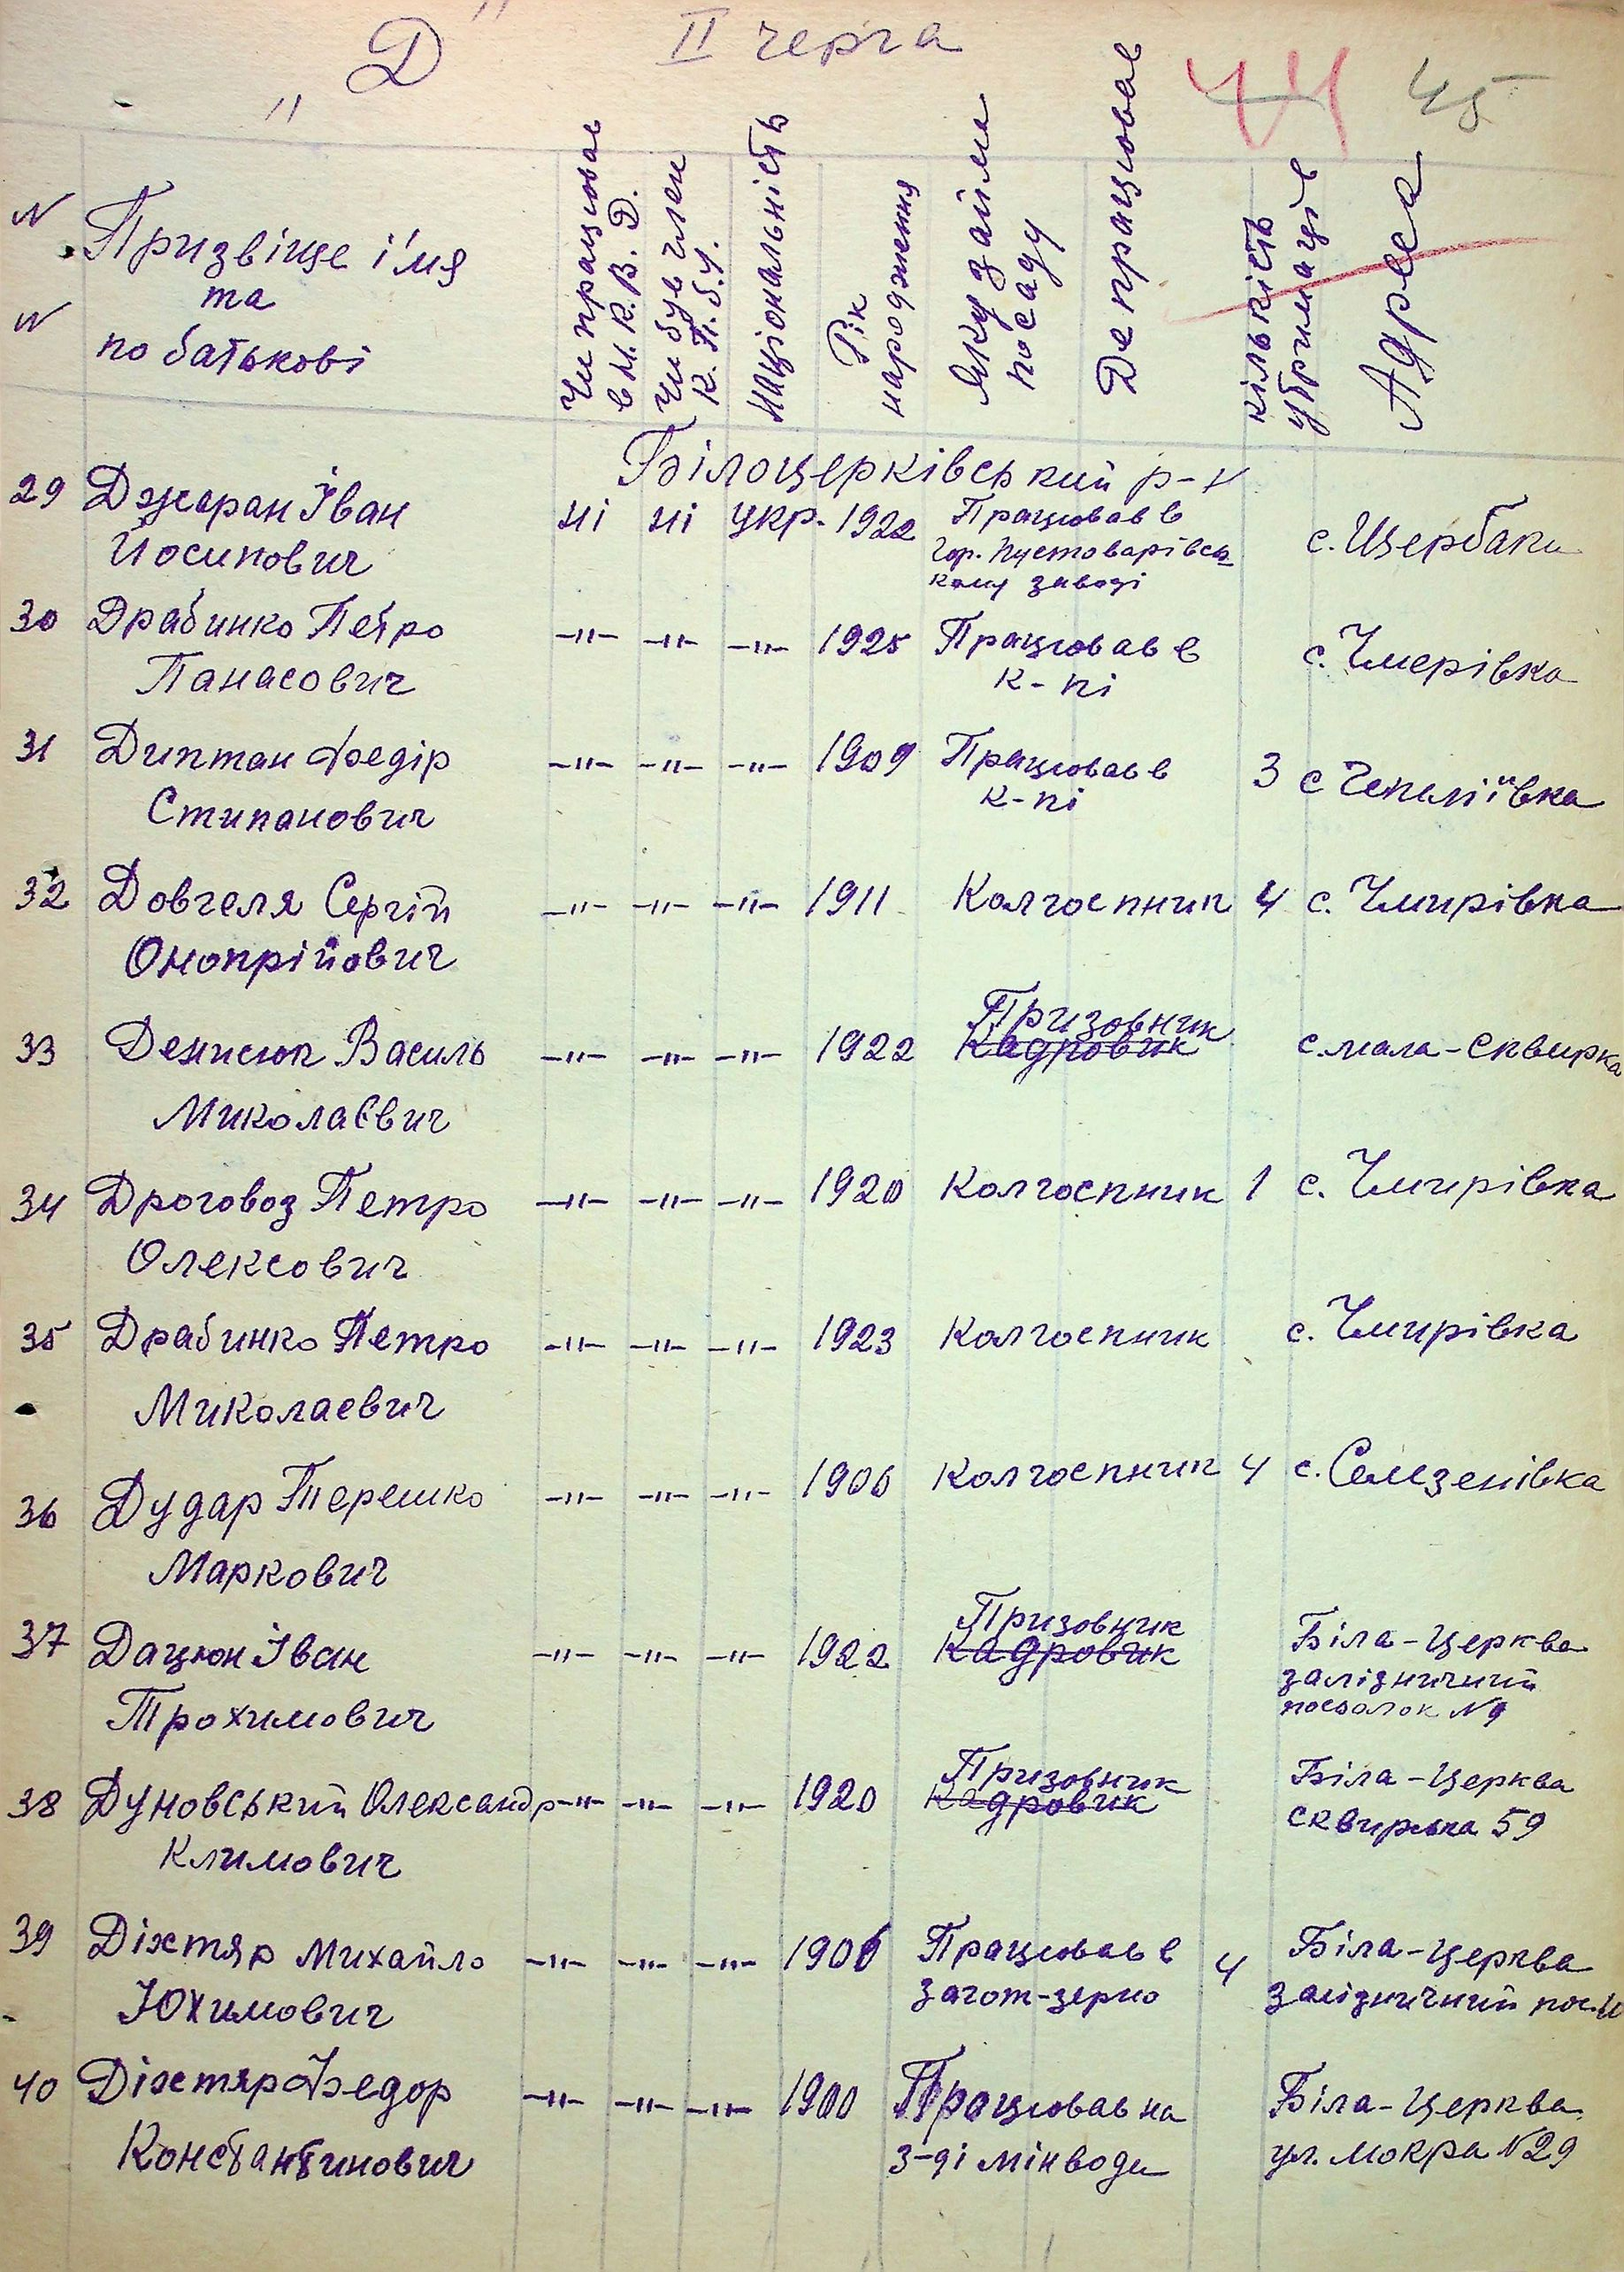 II черга
"Д"
44 45
N
N
Призвіще і'мя
та
по батькові
Чи працював
в Н.К.В.Д.
Чи був член
К.П.б.У.
Національність
Рік
народження
Яку займа
посаду
Де працював
кількість
утриманців
Адреса
Білоцерківський р-н
29 Джеран Іван ні ні укр. 1922 Працював в с. Щербаки
Йосипович Гор. Пустоварівсь
кому заводі
30 Драбинко Петро -"- -"- -"- 1925 Працював в с. Чмерівка
Панасович к-пі
31 Диптан Федір -"- -"- -"- 1909 Працював в 3 с Чепиліївка
Стипанович к-пі
32 Довгеля Сергій -"- -"- -"- 1911 Колгоспник 4 с. Чмирівка
Онопрійович
Призовник
33 Денисюк Василь -"- -"- -"- 1922 Кадровик с. мала-Сквирка
Миколаєвич
34 Дроговоз Петро -"- -"- -"- 1920 Колгоспник 1 с. Чмирівка
Олексович
35 Драбинко Петро -"- -"- -"- 1923 Колгоспник с. Чмирівка
Миколаевич
36 Дудар Терешко -"- -"- -"- 1906 Колгоспник 4 с. Семзенівка
Маркович
Призовник
37 Дацюн Іван -"- -"- -"- 1922 Кадровик Біла-Церква
Трохимович залізничний
посьолок N9
Призовник
38 Дуновський Олександр -"- -"- -"- 1920 Кадровик Біла-Церква
Климович Сквирька 59
39 Діхтяр Михайло -"- -"- -"- 1906 Працював в 4 Біла-Церква
Юхимович загот-зерно залізничний пос.
40 Діхтяр Федор -"- -"- -"- 1900 Працював на Біла-Церква
Константинович з-ді мінводи ул. Мокра N29